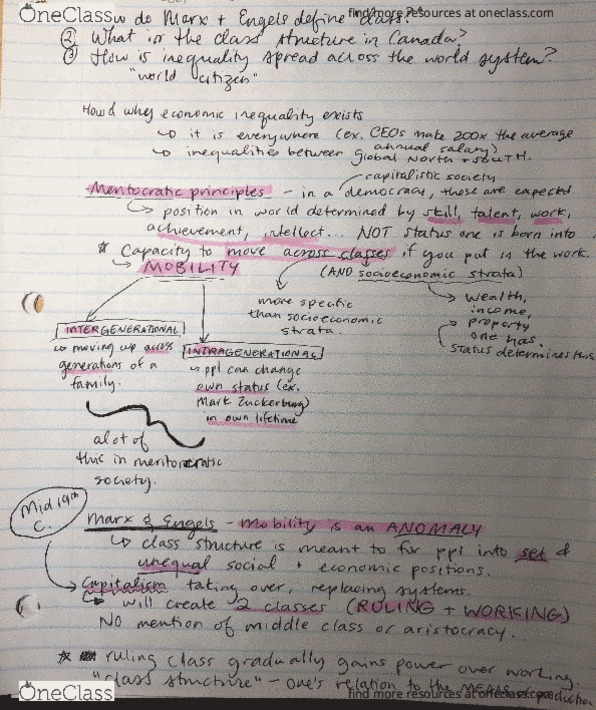 OneClass
find more resources at oneclass.com
How do Marx + Engels define class?
② What is the class structure in Canada?
③ How is inequality spread across the world system?
"world citizen"
How & why economic inequality exists
↳ it is everywhere (ex. CEOs make 200x the average
annual salary)
↳ inequalities between global North + South.
capitalistic society
Meritocratic principles - in a democracy, these are expected.
↳ position in world determined by skill, talent, work,
achievement, intellect... NOT status one is born into
* Capacity to move across classes if you put in the work.
↳ MOBILITY
(AND socioeconomic strata)
more specific
than socioeconomic
strata.
↳ wealth,
income,
↳ property
one has.
status determines this
INTERGENERATIONAL
↳ moving up across
generations of a
family.
INTRAGENERATIONAL
↳ ppl can change
own status (ex.
Mark Zuckerburg)
in own lifetime
alot of
this in meritocratic
society.
Mid 19th
C.
Marx & Engels - mobility is an ANOMALY
↳ class structure is meant to fix ppl into set &
unequal social + economic positions.
Capitalism taking over, replacing systems.
↳ will create 2 classes (RULING + WORKING)
No mention of middle class or aristocracy.
* ruling class gradually gains power over working.
"class structure" - one's relation to the MEANS of production
OneClass
find more resources at oneclass.com